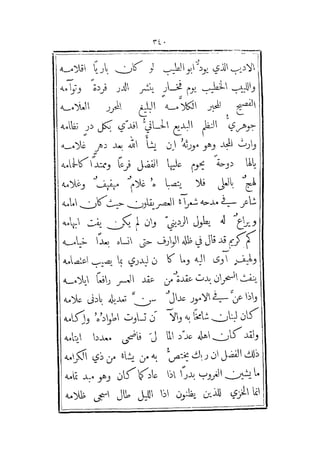 ٣٤٠
الاديب الذي يودّ ابو الطيب لو كان باريًا اقلامه
واللبيب الخطيب يوم فخار ينشر الدر فردة وتوآمه
الفصيح المحبر الكلاّمه البليغ المحرر العلامه
جوهريّ النظم البديع الحسانيّ افدّي بكل درّ نظامه
وارث المجد وهو مورثه ابن يشأ الله بعد دهرٍ غلامه
يالها دوحة يحوم عليها الفضل فرعًا وممتدًا كالحمامه
لهجٌ بالعلى فلا يتصباه غلامٌ مهفهفٌ وغلامه
شاعر في مدحه شعرآء العصر يقلون حيث كان امامه
ويراعٌ له يطول الردينيّ وان لم يكن يفت ابهامه
كم كريم قد قال في ظله الوارف حتى انساه بعدًا خيامه
ولهيف آوى اليه وما كان ليدري بما يصيب اعتصامه
ينفث السحران بدت عقدة من عقد العسر رافعًا ايلامه
واذا عنّ في الامور عدالٌ تعديله بادنى علامه
كان لبنان شامخًا به والآن تساوت اطواده واكامه
ولقد كان اهله عدّد المال فاضحى معددا ايتامه
ذلك الفضل ان ربك يختصّ به من يشاء من ذي الكرامه
ما يشين الغروب بدرًا اذا عاد كما كان وهو مبد تمامه
انما الخزي للذين يظنون اذا الليل طال اسجى ظلامه